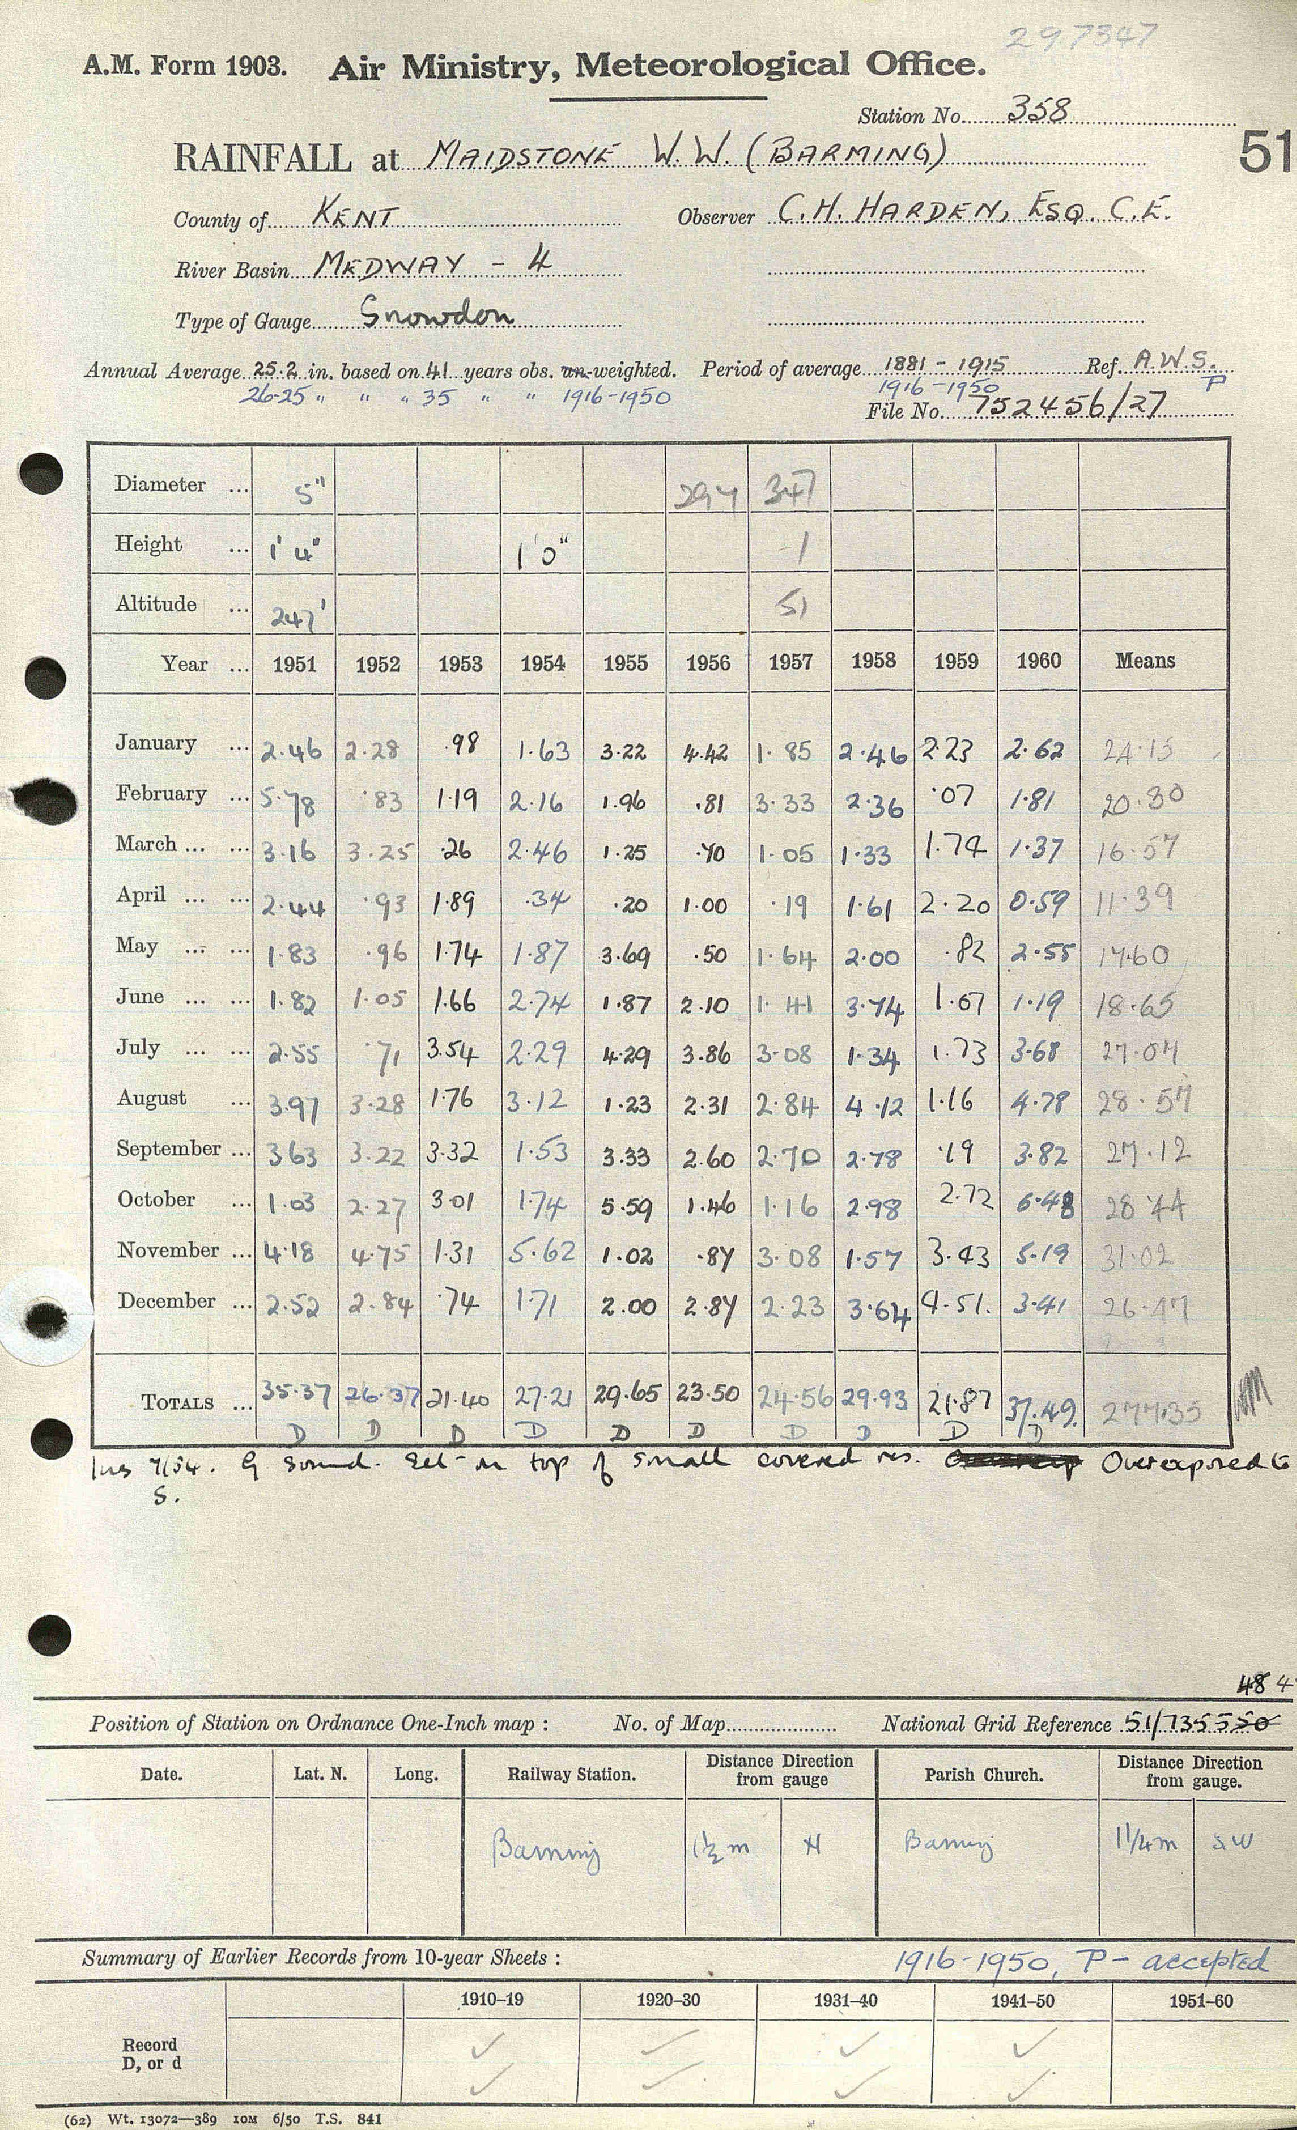 297347
A.M. Form 1903. Air Ministry, Meteorological Office.
Station No. 358
51
RAINFALL at MAIDSTONE W.W. (BARMING)
County of KENT Observer C.H. HARDEN, ESQ. C.E.
River Basin MEDWAY - 4
Type of Gauge Snowdon
Annual Average 25.2 in. based on 41 years obs. un-weighted. Period of average 1881 - 1915 Ref. A.W.S.
26.25 " " " 35 " " 1916-1950 1916-1950 P
File No. 752456/27
Diameter ... 5" 297 347
Height ... 1' 4" 1' 0" 1
Altitude ... 247' 51
Year ... 1951 1952 1953 1954 1955 1956 1957 1958 1959 1960 Means
January ... 2.46 2.28 .98 1.63 3.22 4.42 1.85 2.46 2.23 2.62 24.15
February ... 5.78 .83 1.19 2.16 1.96 .81 3.33 2.36 .07 1.81 20.30
March ... ... 3.16 3.25 .26 2.46 1.25 .70 1.05 1.33 1.74 1.37 16.57
April ... ... 2.44 .93 1.89 .34 .20 1.00 .19 1.61 2.20 0.59 11.39
May ... ... 1.83 .96 1.74 1.87 3.69 .50 1.64 2.00 .82 2.55 17.60
June ... ... 1.82 1.05 1.66 2.74 1.87 2.10 1.41 3.74 1.07 1.19 18.65
July ... ... 2.55 .71 3.54 2.29 4.29 3.86 3.08 1.34 1.73 3.68 27.07
August ... 3.97 3.28 1.76 3.12 1.23 2.31 2.84 4.12 1.16 4.78 28.57
September ... 3.63 3.22 3.32 1.53 3.33 2.60 2.70 2.78 .19 3.82 27.12
October ... 1.03 2.27 3.01 1.74 5.59 1.46 1.16 2.98 2.72 6.48 28.44
November ... 4.18 4.75 1.31 5.62 1.02 .87 3.08 1.57 3.43 5.19 31.02
December ... 2.52 2.84 .74 1.71 2.00 2.87 2.23 3.64 4.51 3.41 26.47
TOTALS ... 35.37 26.37 21.40 27.21 29.65 23.50 24.56 29.93 21.87 37.49 277.35
D D D D D D D D D D
Ins 7/54. G sound. Set in top of small covered res. Overexposed to
S.
48 4
Position of Station on Ordnance One-Inch map : No. of Map National Grid Reference 51/735550
Date. Lat. N. Long. Railway Station. Distance Direction from gauge Parish Church. Distance Direction from gauge.
Barming 1½ m N Barming 1¼ m SW
Summary of Earlier Records from 10-year Sheets : 1916-1950, P - accepted
1910–19 1920–30 1931–40 1941–50 1951–60
Record ✓ ✓ ✓ ✓
D, or d ✓ ✓ ✓ ✓
(62) Wt. 13072—389 10M 6/50 T.S. 841